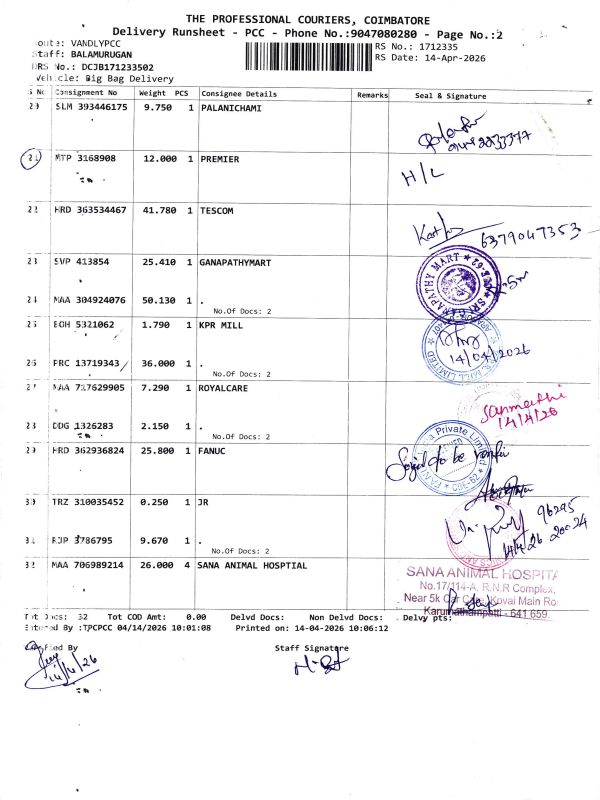 THE PROFESSIONAL COURIERS, COIMBATORE
Delivery Runsheet - PCC - Phone No.:9047080280 - Page No.:2
oute: VANDLYPCC
Staff: BALAMURUGAN
DRS No.: DCJB171233502
Vehicle: Big Bag Delivery
RS No.: 1712335
RS Date: 14-Apr-2026
S No Consignment No Weight PCS Consignee Details Remarks Seal & Signature
20 SLM 393446175 9.750 1 PALANICHAMI
21 MTP 3168908 12.000 1 PREMIER
H/L
22 HRD 363534467 41.780 1 TESCOM
6379047353
23 SVP 413854 25.410 1 GANAPATHYMART
SRI GANAPATHY MART
24 MAA 304924076 50.130 1 .
No.Of Docs: 2
25 BOH 5321062 1.790 1 KPR MILL
14/04/2026
26 PRC 13719343 36.000 1 .
No.Of Docs: 2
27 MAA 717629905 7.290 1 ROYALCARE
Sanmathi
14/4/26
28 DDG 1326283 2.150 1 .
No.Of Docs: 2
29 HRD 362936824 25.800 1 FANUC
Private Limited
to be
30 TRZ 310035452 0.250 1 JR
96295
20024
14/4/26
31 RJP 3786795 9.670 1 .
No.Of Docs: 2
32 MAA 706989214 26.000 4 SANA ANIMAL HOSPTIAL
SANA ANIMAL HOSPITA
No.17/114-A, R.N.R Complex,
Near 5k Car Care, Kovai Main Ro
Karumathampatti - 641 659.
Tot Docs: 32 Tot COD Amt: 0.00 Delvd Docs: Non Delvd Docs: . Delvy pts:
Entered By :TPCPCC 04/14/2026 10:01:08 Printed on: 14-04-2026 10:06:12
Verified By Staff Signature
14/4/26